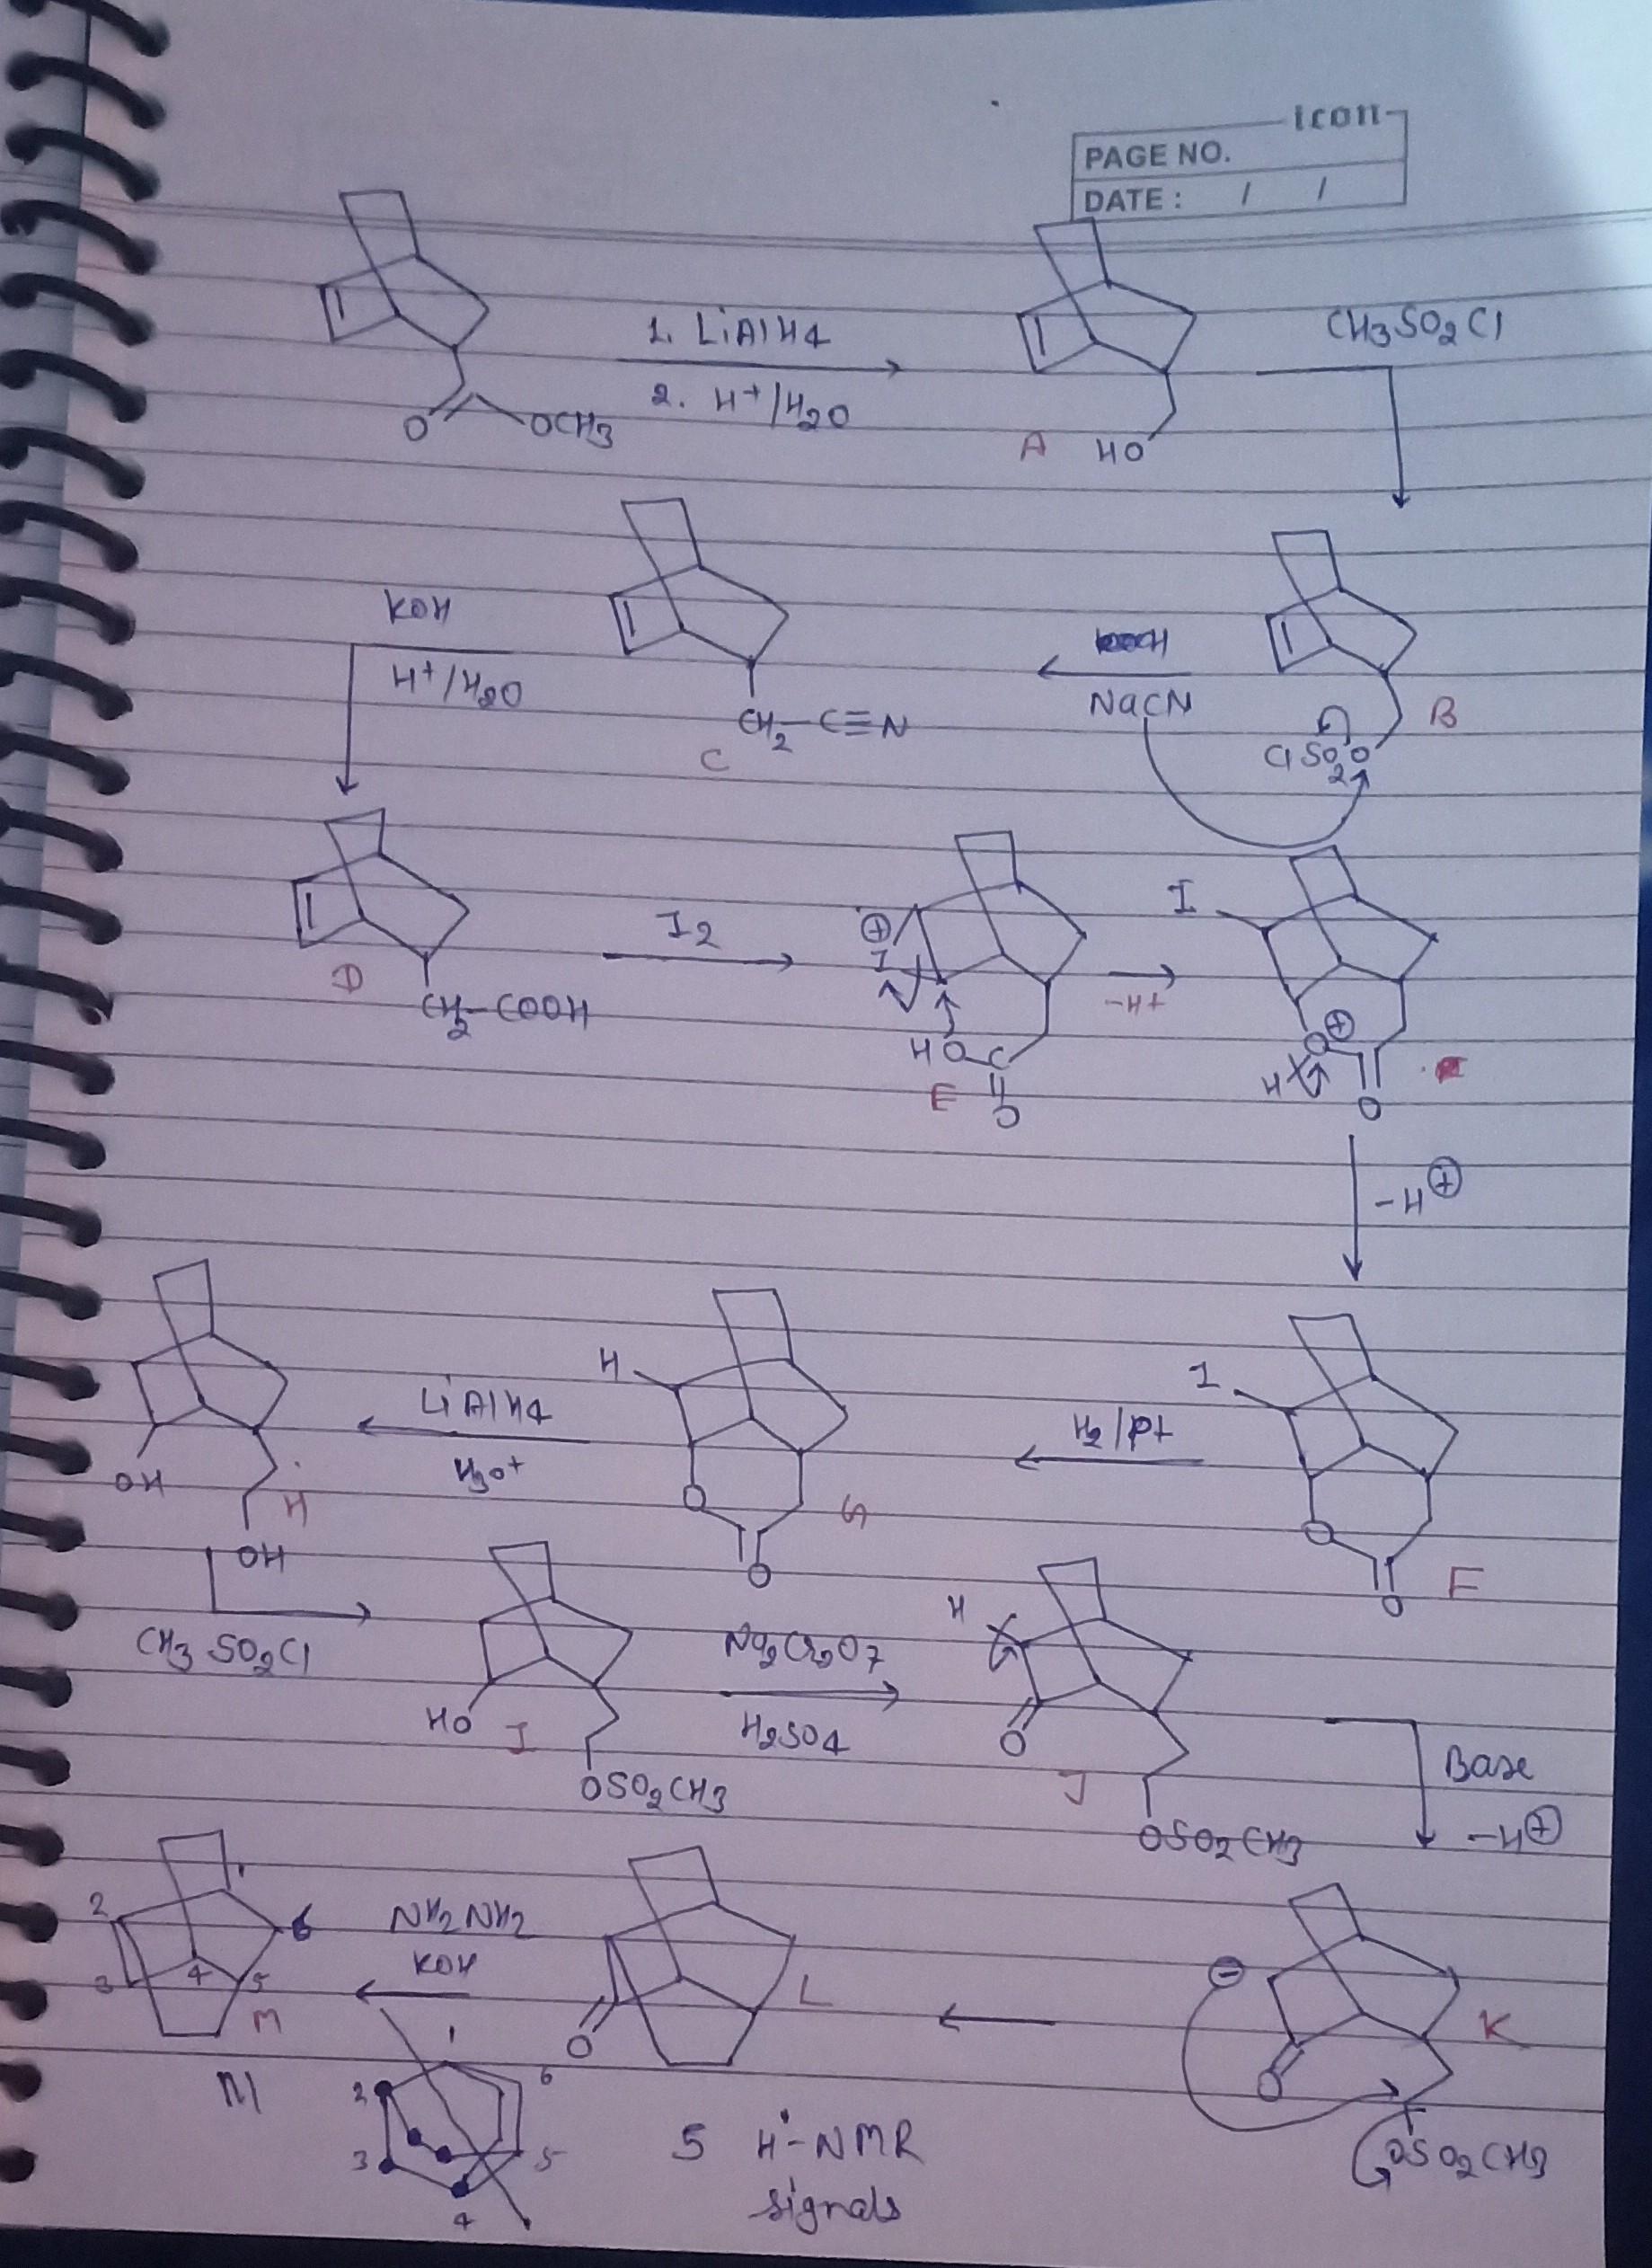 icon
PAGE NO.
DATE : / /
1. LiAlH4
2. H+/H2O
O
OCH3
A HO
CH3SO2Cl
KOH
H+/H2O
CH2-C≡N
C
NaCN
B
ClSO2O
D
CH2-COOH
I2
⊕
I
HO-C
O
E
-H+
I
⊕
O
H
O
-H⊕
OH
H
OH
LiAlH4
H3O+
H
O
O
G
H2/Pt
I
O
O
F
CH3SO2Cl
HO
I
OSO2CH3
Na2Cr2O7
H2SO4
H
O
J
OSO2CH3
Base
-H⊕
1
2
3
4
5
6
M
NH2NH2
KOH
O
L
⊖
O
K
OSO2CH3
M
1
2
3
4
5
6
5 H'-NMR
signals